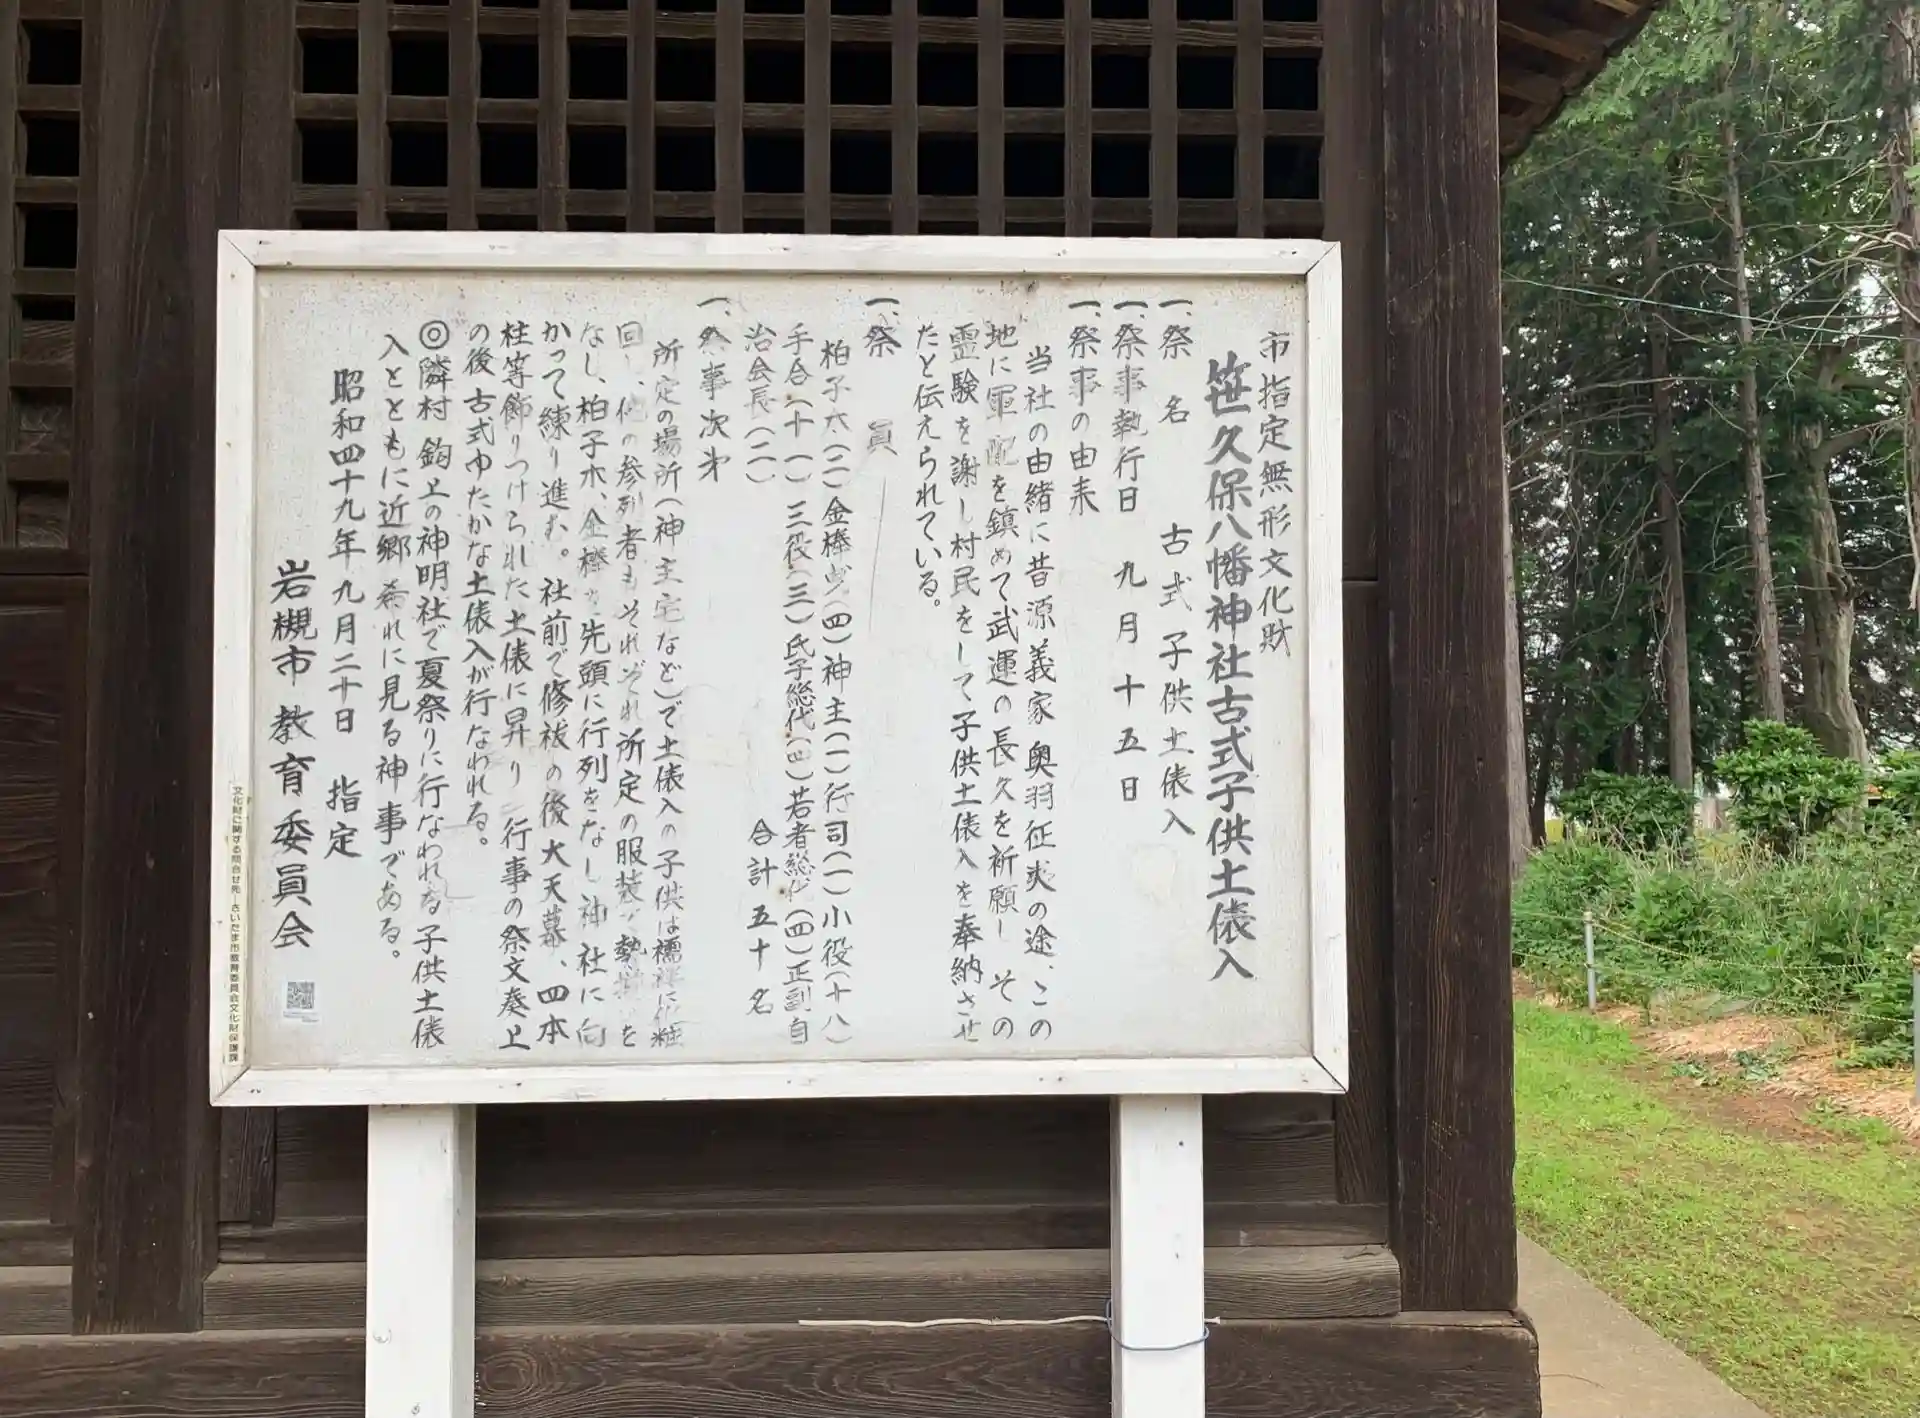 市指定無形文化財
笹久保八幡神社古式子供土俵入
一、祭名 古式子供土俵入
一、祭事執行日 九月十五日
一、祭事の由来
当社の由緒に昔源義家奥羽征夷の途、この
地に軍配を鎮めて武運の長久を祈願し その
霊験を謝し村民をして子供土俵入を奉納させ
たと伝えられている。
一、祭員
柏子木(二)金棒(四)神主(一)行司(一)小役(十八)
手合(十一)三役(三)氏子総代(四)若者総代(四)正副自
治会長(二) 合計五十名
一、祭事次第
所定の場所(神主宅など)で土俵入の子供は襦袢に化粧
回し、他の参列者もそれぞれ所定の服装で勢揃いを
なし、柏子木、金棒を先頭に行列をなし神社に向
かって練り進む。社前で修祓の後大天幕、四本
柱等飾りつけられた土俵に昇り 行事の祭文奏上
の後古式ゆたかな土俵入が行なわれる。
◎隣村 鈎上の神明社で夏祭りに行なわれる子供土俵
入とともに近郷 希れに見る神事である。
昭和四十九年九月二十日 指定
岩槻市教育委員会
文化財に関する問合せ先―さいたま市教育委員会文化財保護課